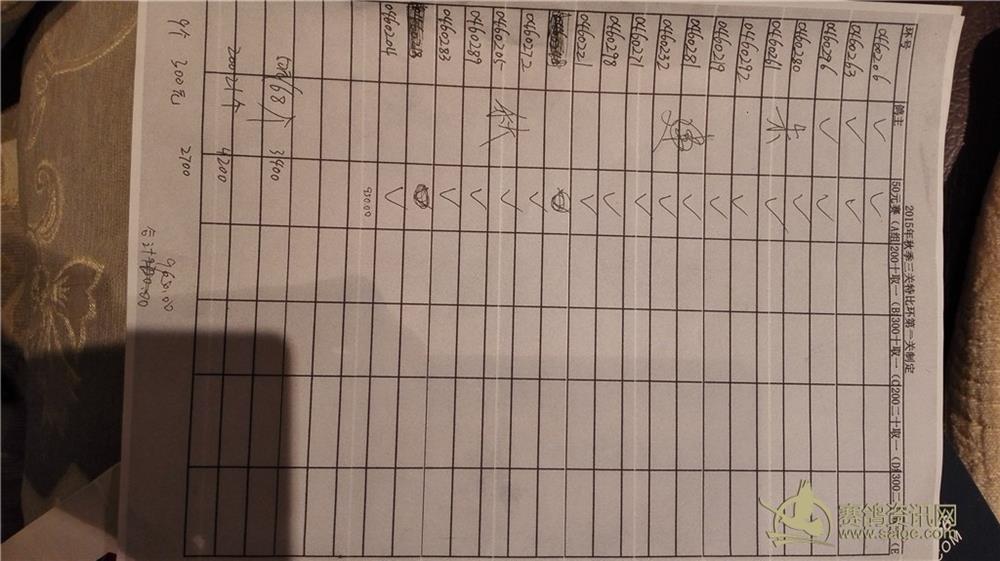 2015年秋季三关特比环第一关制定
环号 鸽主 50元赛 (A组200十取一 (B)300十取一 (C)200二十取一 (D)300二 (E
0460206 ✓ ✓
0460263 ✓ ✓
0460296 ✓ ✓
0460280 ✓
0460261 朱 ✓
0460292 ✓
0460219 ✓
0460281 ✓
0460232 ✓
0460271 ✓
0460298 ✓
0460221 ✓
0460272 ✓
0460205 林 ✓
0460289 ✓
0460283 ✓
0460204 ✓
950.00
50元68个 3400
200 21个 4200
9个 300元 2700
9650.00
合计
赛鸽资讯网
www.saigc.com